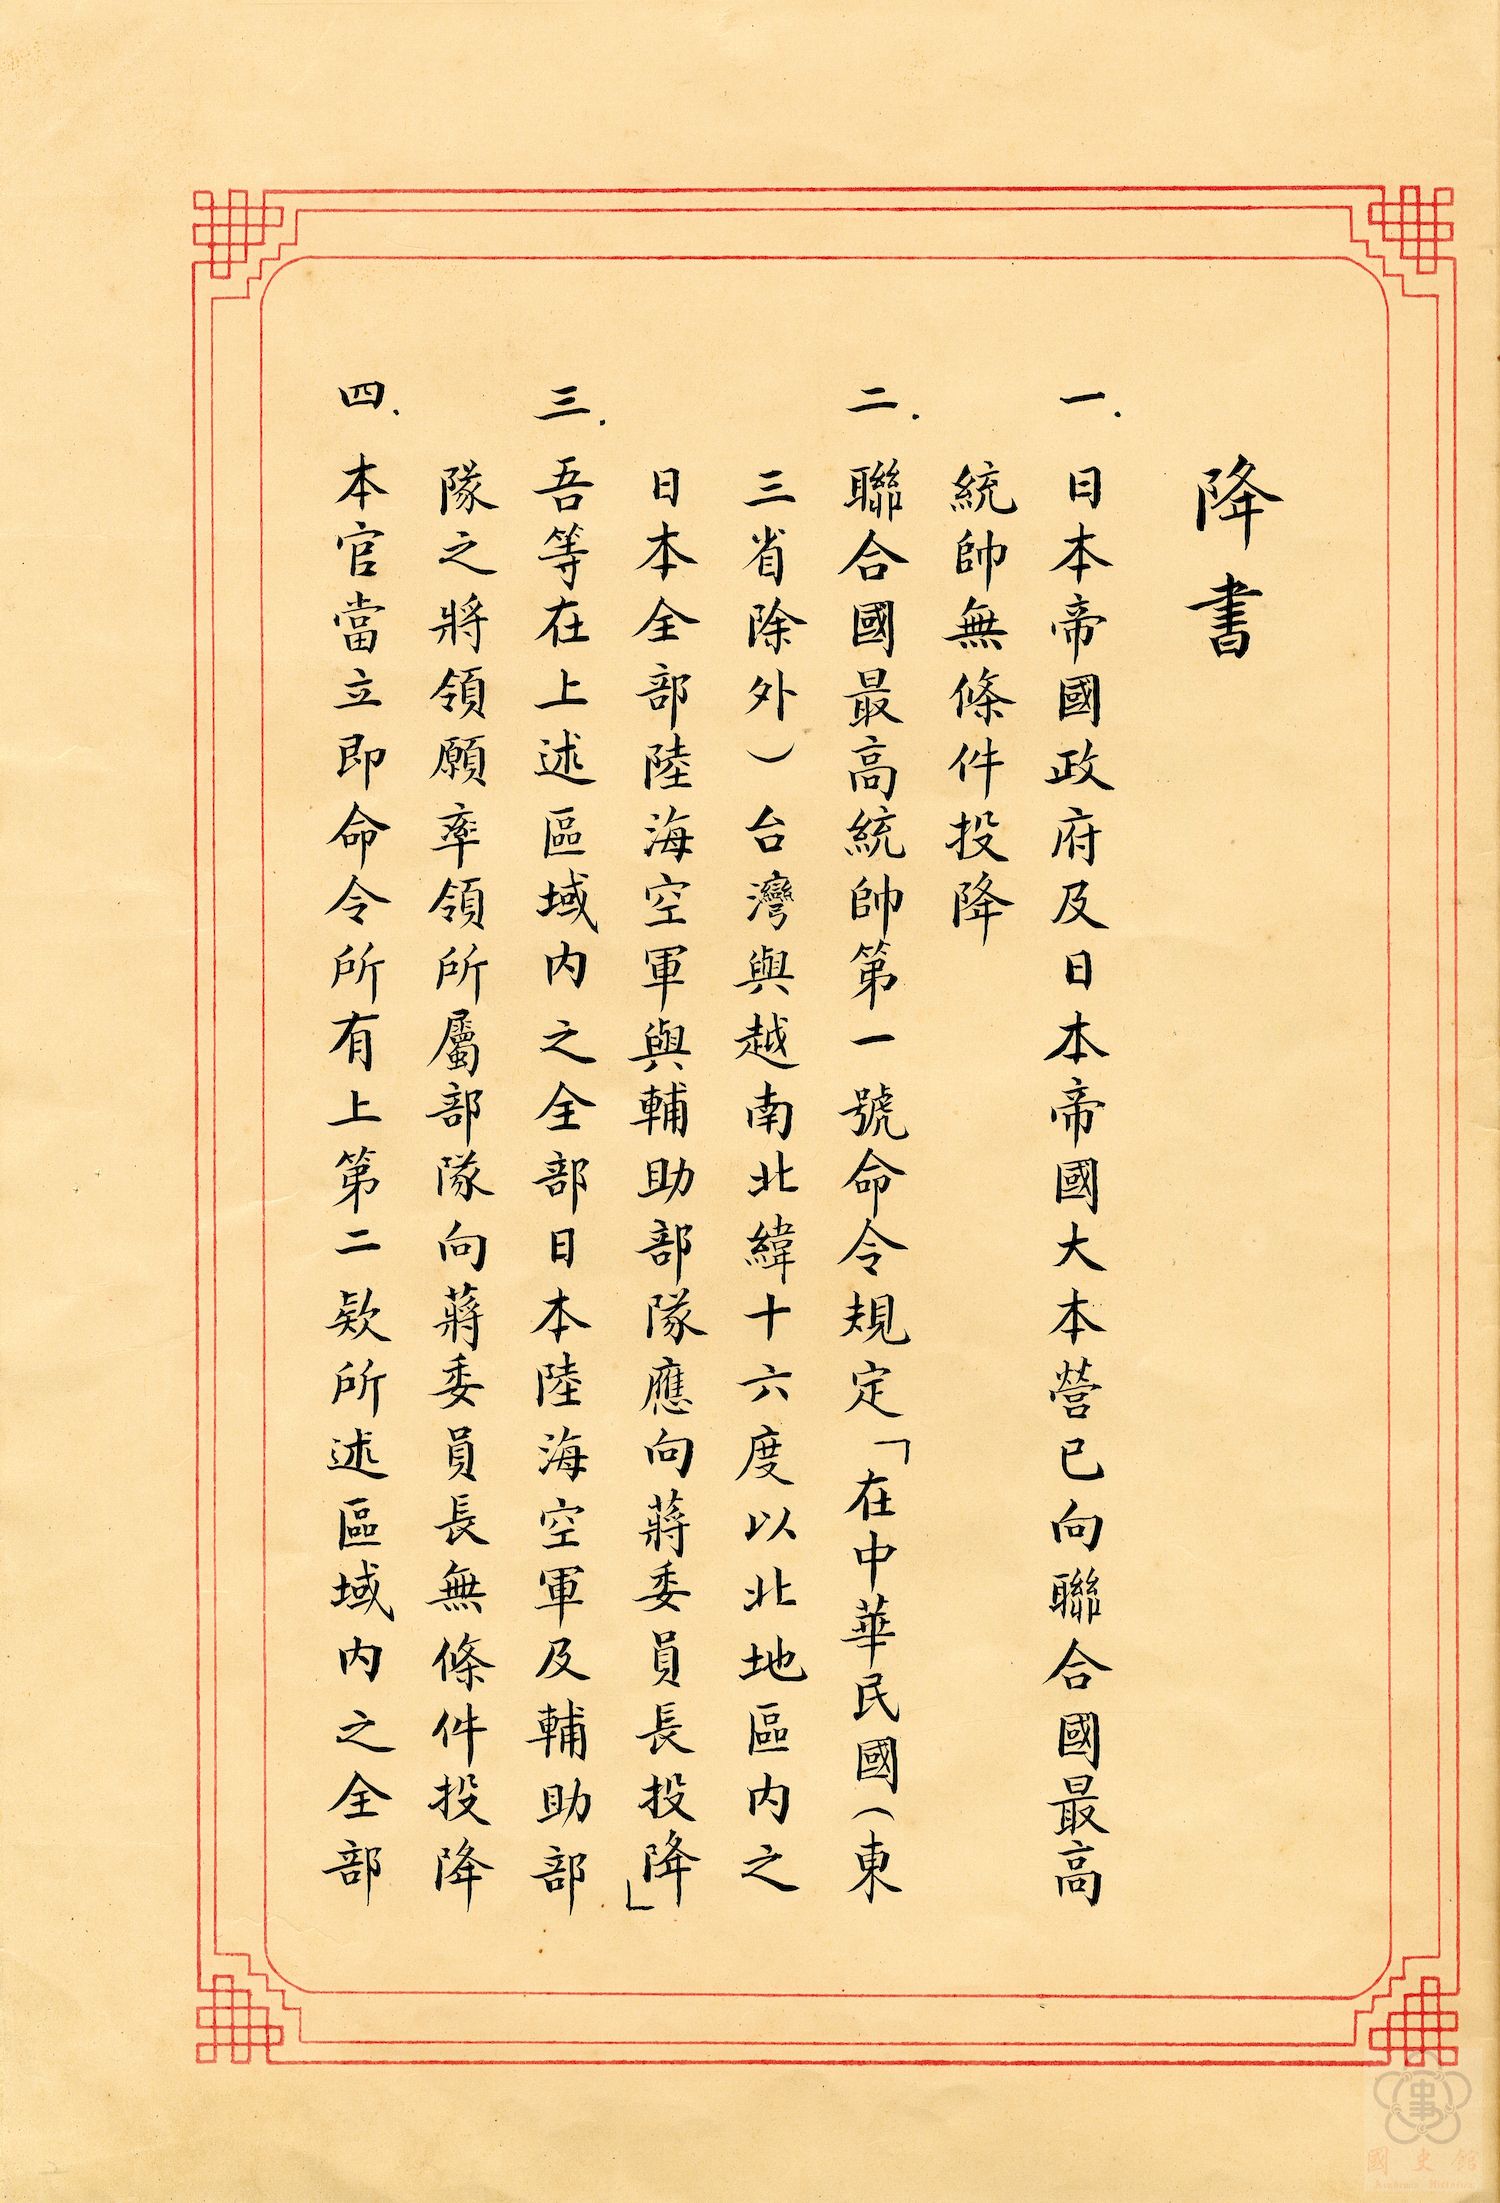 降書
一.日本帝國政府及日本帝國大本營已向聯合國最高
統帥無條件投降
二.聯合國最高統帥第一號命令規定「在中華民國(東
三省除外)台灣與越南北緯十六度以北地區內之
日本全部陸海空軍與輔助部隊應向蔣委員長投降」
三.吾等在上述區域內之全部日本陸海空軍及輔助部
隊之將領願率領所屬部隊向蔣委員長無條件投降
四.本官當立即命令所有上第二款所述區域內之全部
國史館
Academia Historica